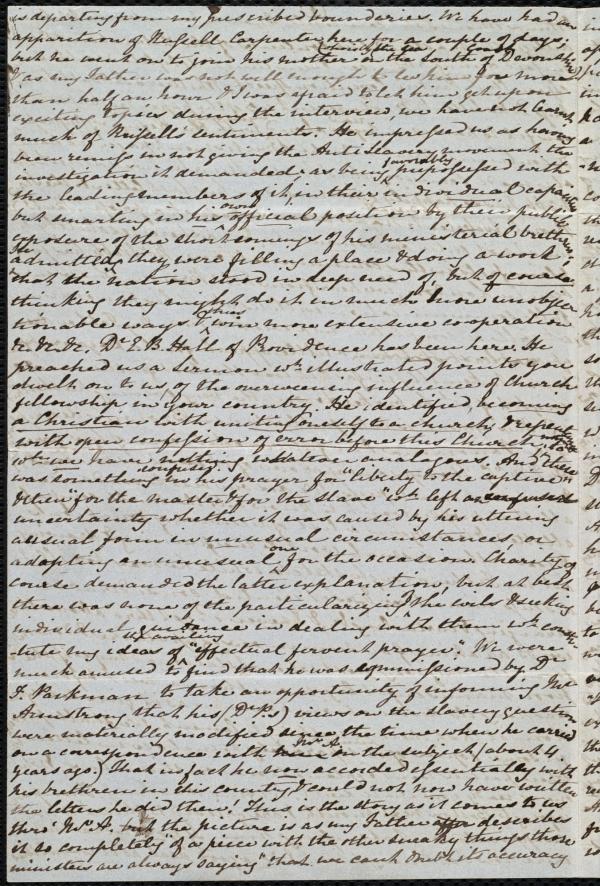 is departing from my prescribed bounderies. We have had an
apparition of Russell Carpenter here for a couple of days,
but he went on to join his mother on the South Coast of Devonshire
& as my Father was not well enough to see him for more
than half an hour & I was afraid to let him get upon
exciting topics during the interview, we have not learnt
much of Russell's sentiments. He impressed us as having
been remiss in not giving the Anti Slavery movement the
investigation it demanded; as being favorably prepossessed with
the leading members of it, in their individual capacities
but smarting in his own official position by their public
exposure of the short comings of his ministerial brethren;
He admitted they were filling a place & doing a work
that the nation stood in deep need of, but of course
thinking they might do it in much more unobjec
tionable ways & thus win more extensive cooperation
&c &c &c. Dr. E B Hall of Providence has been here. He
preached us a sermon wh. illustrated points you
dwelt on to us, of the overweening influence of Church
fellowship in your country. He identified, becoming
a Christian with uniting oneself to a church, & repentance
with open confession of error before this Church,
wth us have nothing analogous. And there
was something confused in his prayer for "liberty to the captive"
& then for the master & for the slave" wh. left an
uncertainty whether it was caused by his uttering
a usual form in unusual circumstances, or
adopting an unusual one for the occasion. Charity of
course demanded the latter explanation, but at best
there was none of the particularizing the evils & seeking
individual guidance in dealing with them wh. consti-
tute my ideas of "effectual fervent prayer". We were
much amused to find that he was commissioned by Dr
F. Parkman to take an opportunity of informing Mr
Armstrong that his (Dr P's) views on the slavery question
were materially modified since the time when he carried
on a correspondence with Mr. A. on the subject (about 4
years ago.) That in fact he now accorded essentially with
his brethren in this country & could not now have written
the letters he did then! This is the story as it comes to us
thro' Mr. A. but the picture is as my Father describes
it so completely of a piece with the other sneaky things those
ministers are always saying" that we cant doubt its accuracy